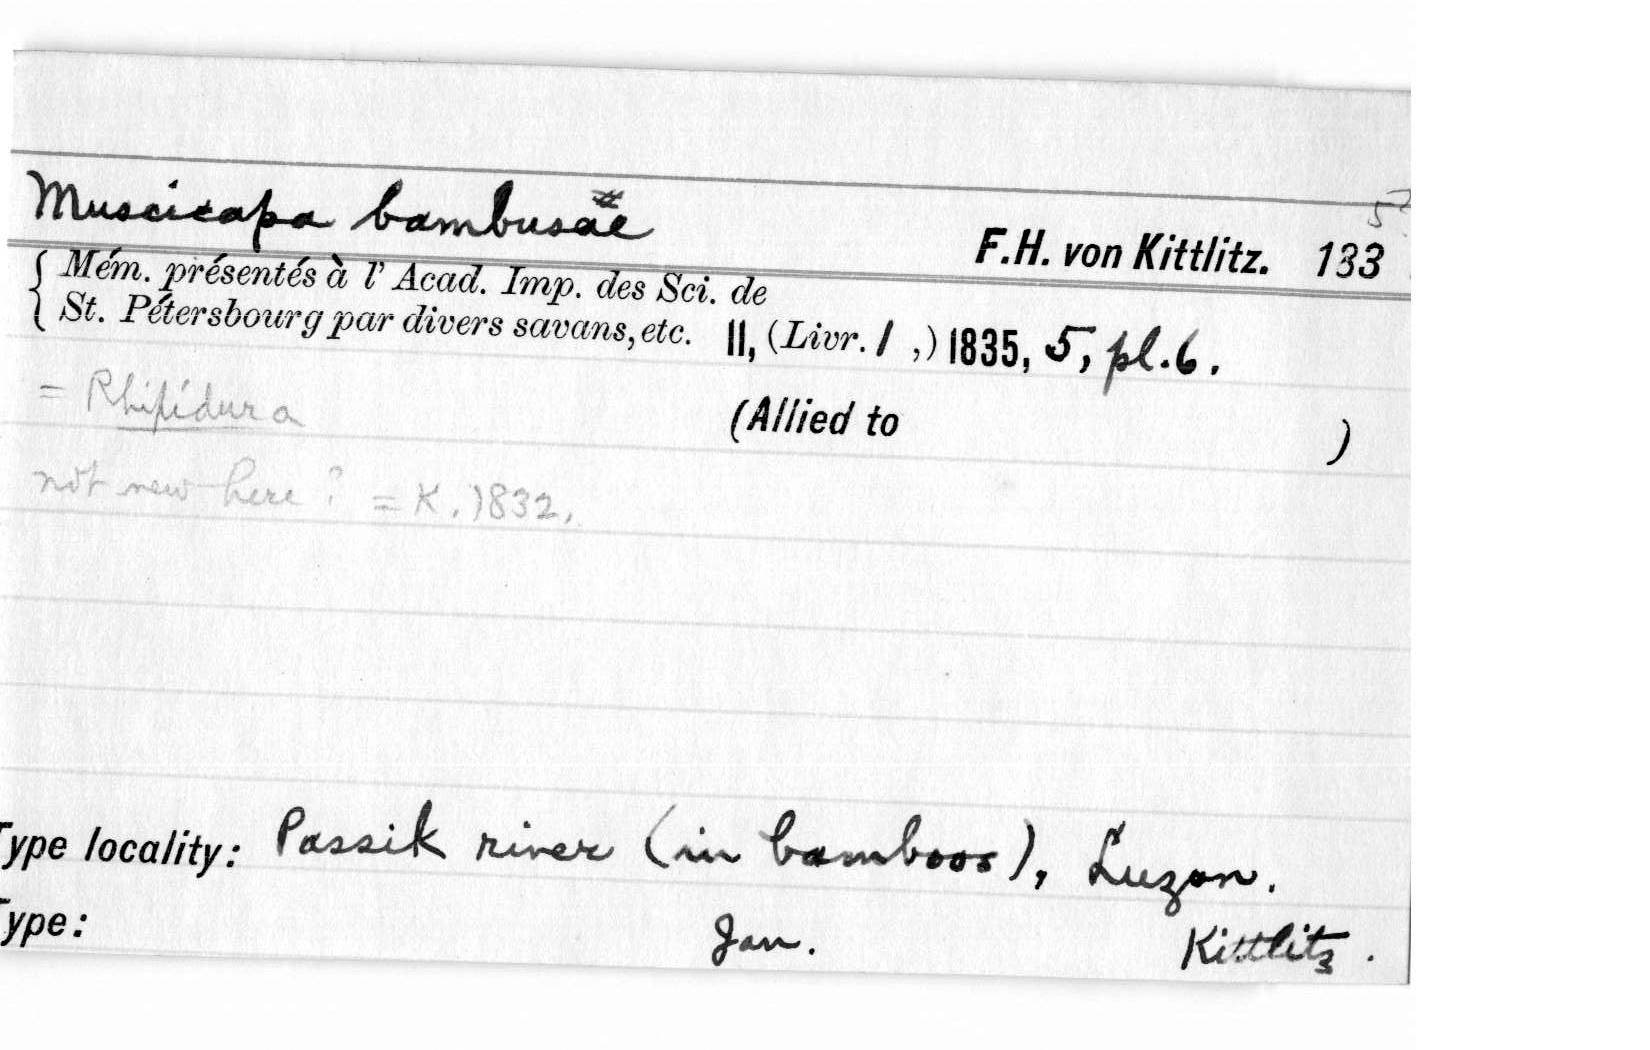 Muscicapa bambusae
F.H. von Kittlitz. 133
5?
{ Mém. présentés à l' Acad. Imp. des Sci. de
St. Pétersbourg par divers savans, etc. II, (Livr. 1 ,) 1835, 5, pl. 6.
= Rhipidura (Allied to )
not new here? = K. 1832.
Type locality: Passik river (in bamboos), Luzon.
Type: Jan. Kittlitz.